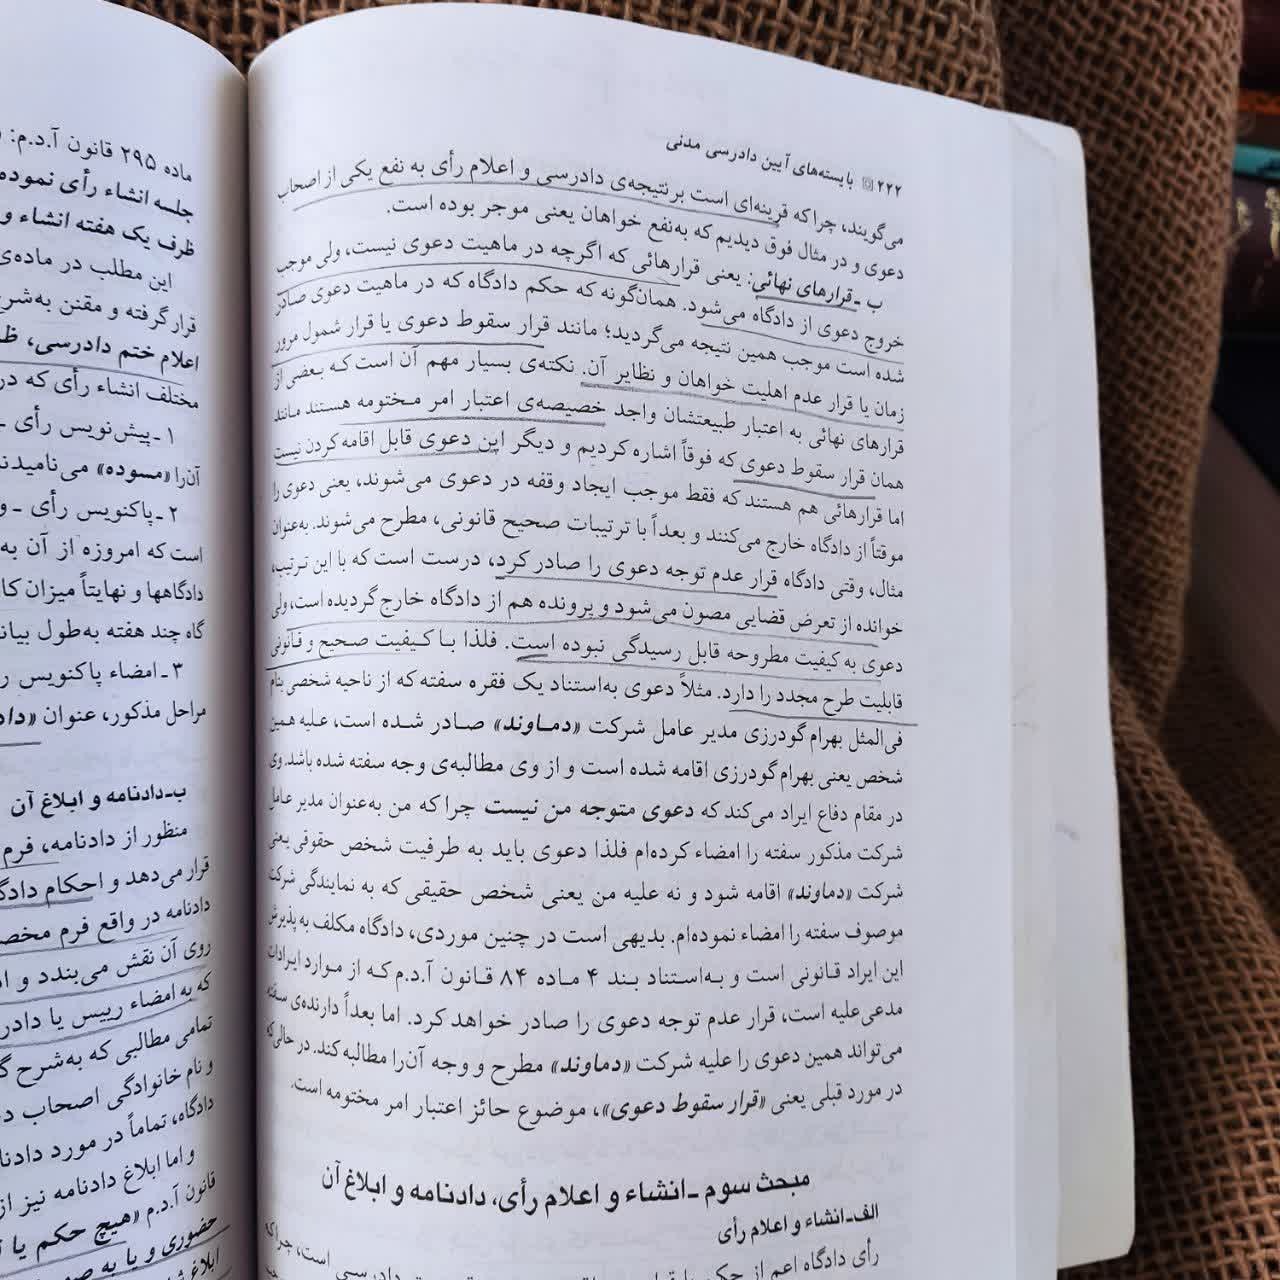 ۲۲۲ بایسته‌های آیین دادرسی مدنی
می‌گویند، چراکه قرینه‌ای است برنتیجه‌ی دادرسی و اعلام رأی به نفع یکی از اصحاب
دعوی و در مثال فوق دیدیم که به‌نفع خواهان یعنی موجر بوده است.
ب ـ قرارهای نهائی: یعنی قرارهائی که اگرچه در ماهیت دعوی نیست، ولی موجب
خروج دعوی از دادگاه می‌شود. همان‌گونه که حکم دادگاه که در ماهیت دعوی صادر
شده است موجب همین نتیجه می‌گردید؛ مانند قرار سقوط دعوی یا قرار شمول مرور
زمان یا قرار عدم اهلیت خواهان و نظایر آن. نکته‌ی بسیار مهم آن است که بعضی از
قرارهای نهائی به اعتبار طبیعتشان واجد خصیصه‌ی اعتبار امر مختومه هستند مانند
همان قرار سقوط دعوی که فوقاً اشاره کردیم و دیگر این دعوی قابل اقامه کردن نیست
اما قرارهائی هم هستند که فقط موجب ایجاد وقفه در دعوی می‌شوند، یعنی دعوی را
موقتاً از دادگاه خارج می‌کنند و بعداً با ترتیبات صحیح قانونی، مطرح می‌شوند. به‌عنوان
مثال، وقتی دادگاه قرار عدم توجه دعوی را صادر کرد، درست است که با این ترتیب،
خوانده از تعرض قضایی مصون می‌شود و پرونده هم از دادگاه خارج گردیده است، ولی
دعوی به کیفیت مطروحه قابل رسیدگی نبوده است. فلذا با کیفیت صحیح و قانونی
قابلیت طرح مجدد را دارد. مثلاً دعوی به‌استناد یک فقره سفته که از ناحیه شخصی بنام
فی‌المثل بهرام گودرزی مدیر عامل شرکت «دماوند» صادر شده است، علیه همین
شخص یعنی بهرام گودرزی اقامه شده است و از وی مطالبه‌ی وجه سفته شده باشد. وی
در مقام دفاع ایراد می‌کند که دعوی متوجه من نیست چرا که من به‌عنوان مدیر عامل
شرکت مذکور سفته را امضاء کرده‌ام فلذا دعوی باید به طرفیت شخص حقوقی یعنی
شرکت «دماوند» اقامه شود و نه علیه من یعنی شخص حقیقی که به نمایندگی شرکت
موصوف سفته را امضاء نموده‌ام. بدیهی است در چنین موردی، دادگاه مکلف به پذیرش
این ایراد قانونی است و به‌استناد بند ۴ ماده ۸۴ قانون آ.د.م که از موارد ایرادات
مدعی‌علیه است، قرار عدم توجه دعوی را صادر خواهد کرد. اما بعداً دارنده‌ی سفته
می‌تواند همین دعوی را علیه شرکت «دماوند» مطرح و وجه آن‌را مطالبه کند. در حالی‌که
در مورد قبلی یعنی «قرار سقوط دعوی»، موضوع حائز اعتبار امر مختومه است.
مبحث سوم ـ انشاء و اعلام رأی، دادنامه و ابلاغ آن
الف ـ انشاء و اعلام رأی
رأی دادگاه اعم از حکم یا دادرسی است، چراکه
ماده ۲۹۵ قانون آ.د.م:
جلسه انشاء رأی نموده
ظرف یک هفته انشاء و
این مطلب در ماده‌ی
قرار گرفته و مقنن به‌شرح
اعلام ختم دادرسی،
مختلف انشاء رأی که در
۱ ـ پیش‌نویس رأی ـ
آن‌را «مسوده» می‌نامیدند
۲ ـ پاکنویس رأی ـ و
است که امروزه از آن به
دادگاهها و نهایتاً میزان کا
گاه چند هفته به‌طول بیانـ
۳ ـ امضاء پاکنویس ر
مراحل مذکور، عنوان «داد
ب ـ دادنامه و ابلاغ آن
منظور از دادنامه، فرم
قرار می‌دهد و احکام دادگـ
دادنامه در واقع فرم مخصـ
روی آن نقش می‌بندد و
که به امضاء رییس یا دادر
تمامی مطالبی که به‌شرح
و نام خانوادگی اصحاب د
دادگاه، تماماً در مورد دادنا
و اما ابلاغ دادنامه نیز از
قانون آ.د.م «هیچ حکم یا
حضوری و یا به
ابلاغ